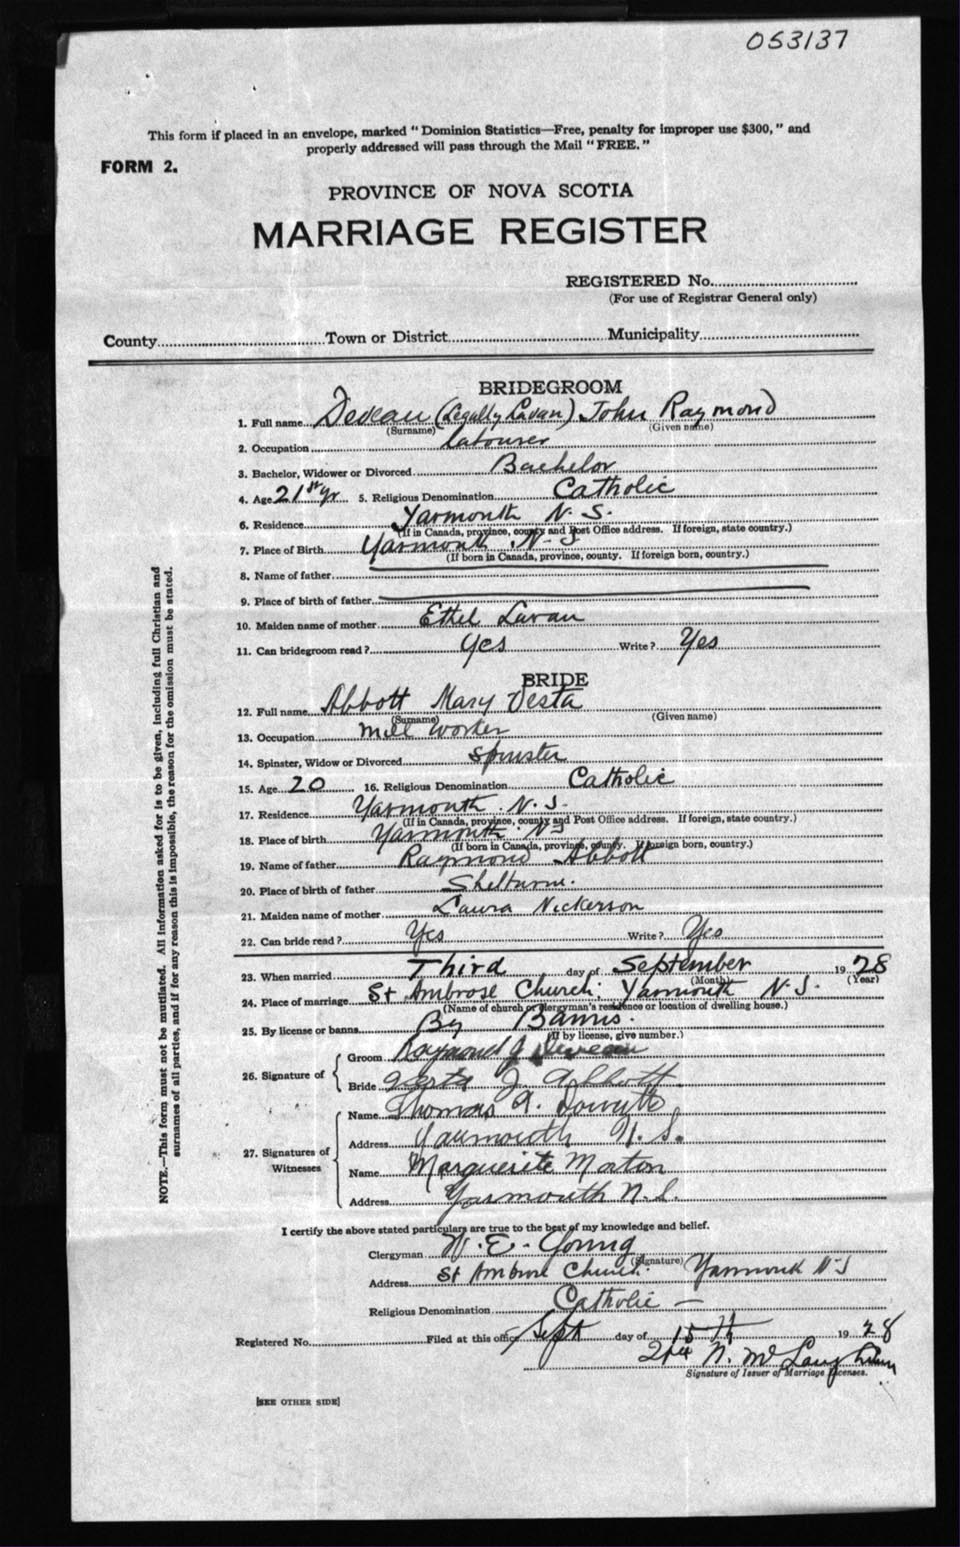 053137
This form if placed in an envelope, marked "Dominion Statistics—Free, penalty for improper use $300," and
properly addressed will pass through the Mail "FREE."
FORM 2.
PROVINCE OF NOVA SCOTIA
MARRIAGE REGISTER
REGISTERED No.
(For use of Registrar General only)
County Town or District Municipality
NOTE.—This form must not be mutilated. All information asked for is to be given, including full Christian and
surnames of all parties, and if for any reason this is impossible, the reason for the omission must be stated.
BRIDEGROOM
1. Full name Deveau (Legally Lavan) John Raymond
(Surname) (Given name)
2. Occupation labourer
3. Bachelor, Widower or Divorced Bachelor
4. Age 21 yr 5. Religious Denomination Catholic
6. Residence Yarmouth N. S.
(If in Canada, province, county and Post Office address. If foreign, state country.)
7. Place of Birth Yarmouth N. S
(If born in Canada, province, county. If foreign born, country.)
8. Name of father
9. Place of birth of father
10. Maiden name of mother Ethel Lavan
11. Can bridegroom read? Yes Write? Yes
BRIDE
12. Full name Abbott Mary Vesta
(Surname) (Given name)
13. Occupation Mill worker
14. Spinster, Widow or Divorced Spinster
15. Age 20 16. Religious Denomination Catholic
17. Residence Yarmouth. N. S.
(If in Canada, province, county and Post Office address. If foreign, state country.)
18. Place of birth Yarmouth. NS
(If born in Canada, province, county. If foreign born, country.)
19. Name of father Raymond Abbott
20. Place of birth of father
21. Maiden name of mother Laura Nickerson
22. Can bride read? Yes Write? Yes
23. When married Third day of September 1928
(Month) (Year)
24. Place of marriage St Ambrose Church. Yarmouth N. S.
(Name of church or clergyman's residence or location of dwelling house.)
25. By license or banns By Banns.
(If by license, give number.)
26. Signature of
Groom Raymond J Deveau
Bride Vesta J. Abbott
27. Signatures of Witnesses
Name Thomas A.
Address Yarmouth N. S.
Name Marguerite Morton
Address Yarmouth N. S.
I certify the above stated particulars are true to the best of my knowledge and belief.
Clergyman W. E. Young
(Signature)
Address St Ambrose Church. Yarmouth N S
Religious Denomination Catholic —
Registered No. Filed at this office Sept day of 15th 1928
N. McLaughlin
Signature of Issuer of Marriage Licenses.
[SEE OTHER SIDE]